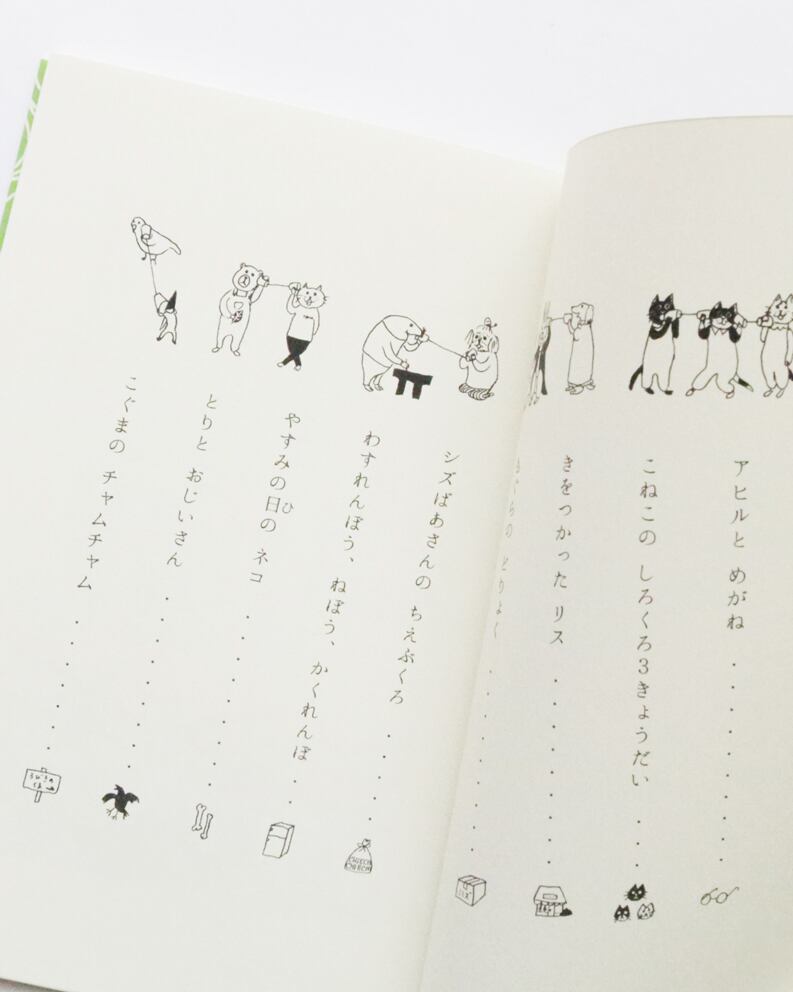 アヒルと めがね
こねこの しろくろ3きょうだい
きをつかった リス
シズばあさんの ちえぶくろ
わすれんぼう、ねぼう、かくれんぼ
やすみの日の ネコ
ひ
とりと おじいさん
こぐまの チャムチャム